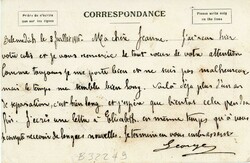 CORRESPONDANCE
Prière de n'écrire
que sur ces lignes
Please write only
on the lines
le 8 juillet 1915. Ma chère Jeanne. J'ai reçu hier
votre carte et je vous remercie de tout cœur de votre attention
Comme toujours je me porte bien et ne suis pas malheureux
mais le temps me semble bien long. Voilà déjà plus d'un an
de séparation, c'est bien long et j'espère que bientôt cela
J'écris une lettre à Elisabeth en même temps qu'à vous
recevoir de longues nouvelles. Je termine en vous embrassant
E32243